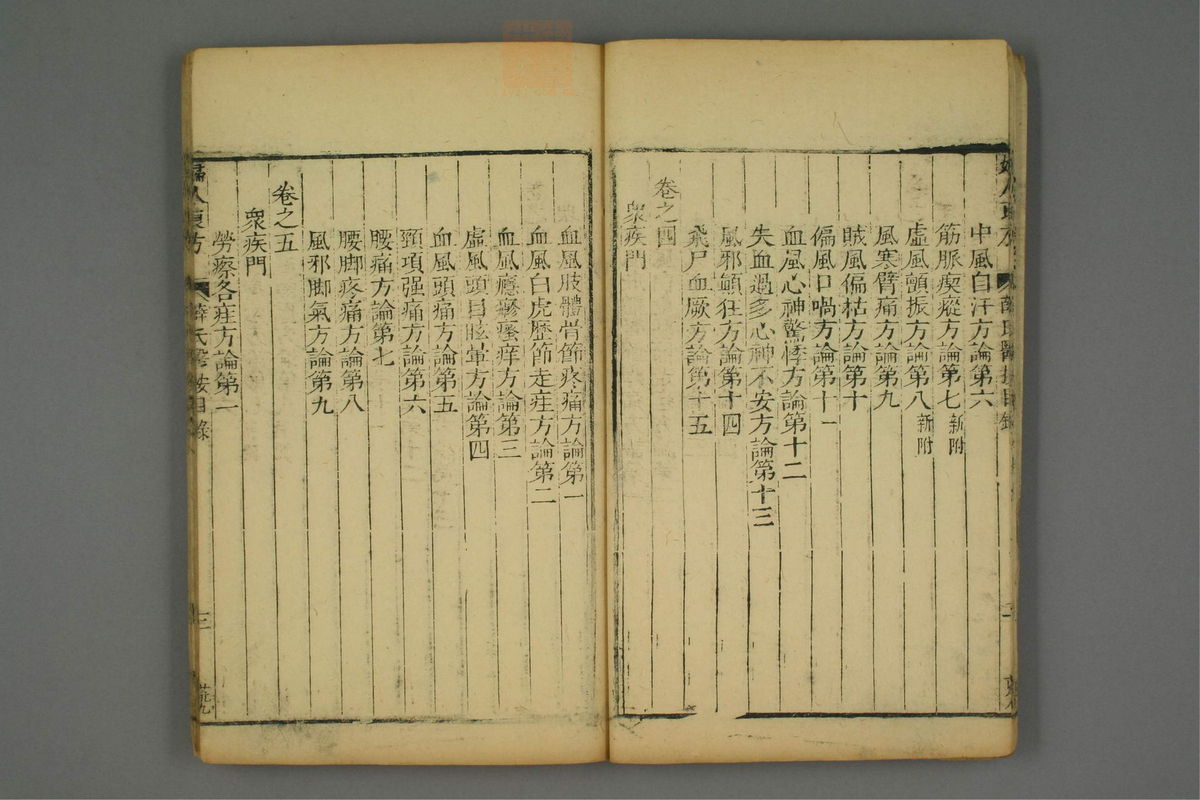 中風自汗方論第六
筋脈瘈瘲方論第七 新附
虛風顫振方論第八 新附
風寒臂痛方論第九
賊風偏枯方論第十
偏風口喎方論第十一
血風心神驚悸方論第十二
失血過多心神不安方論第十三
風邪顛狂方論第十四
飛尸血厥方論第十五
卷之四
衆疾門
血風肢體骨節疼痛方論第一
血風白虎歷節走疰方論第二
血風癮疹瘙痒方論第三
虛風頭目眩暈方論第四
血風頭痛方論第五
頸項强痛方論第六
腰痛方論第七
腰脚疼痛方論第八
風邪脚氣方論第九
卷之五
衆疾門
勞瘵各疰方論第一
婦人良方
薛氏醫按目錄
三